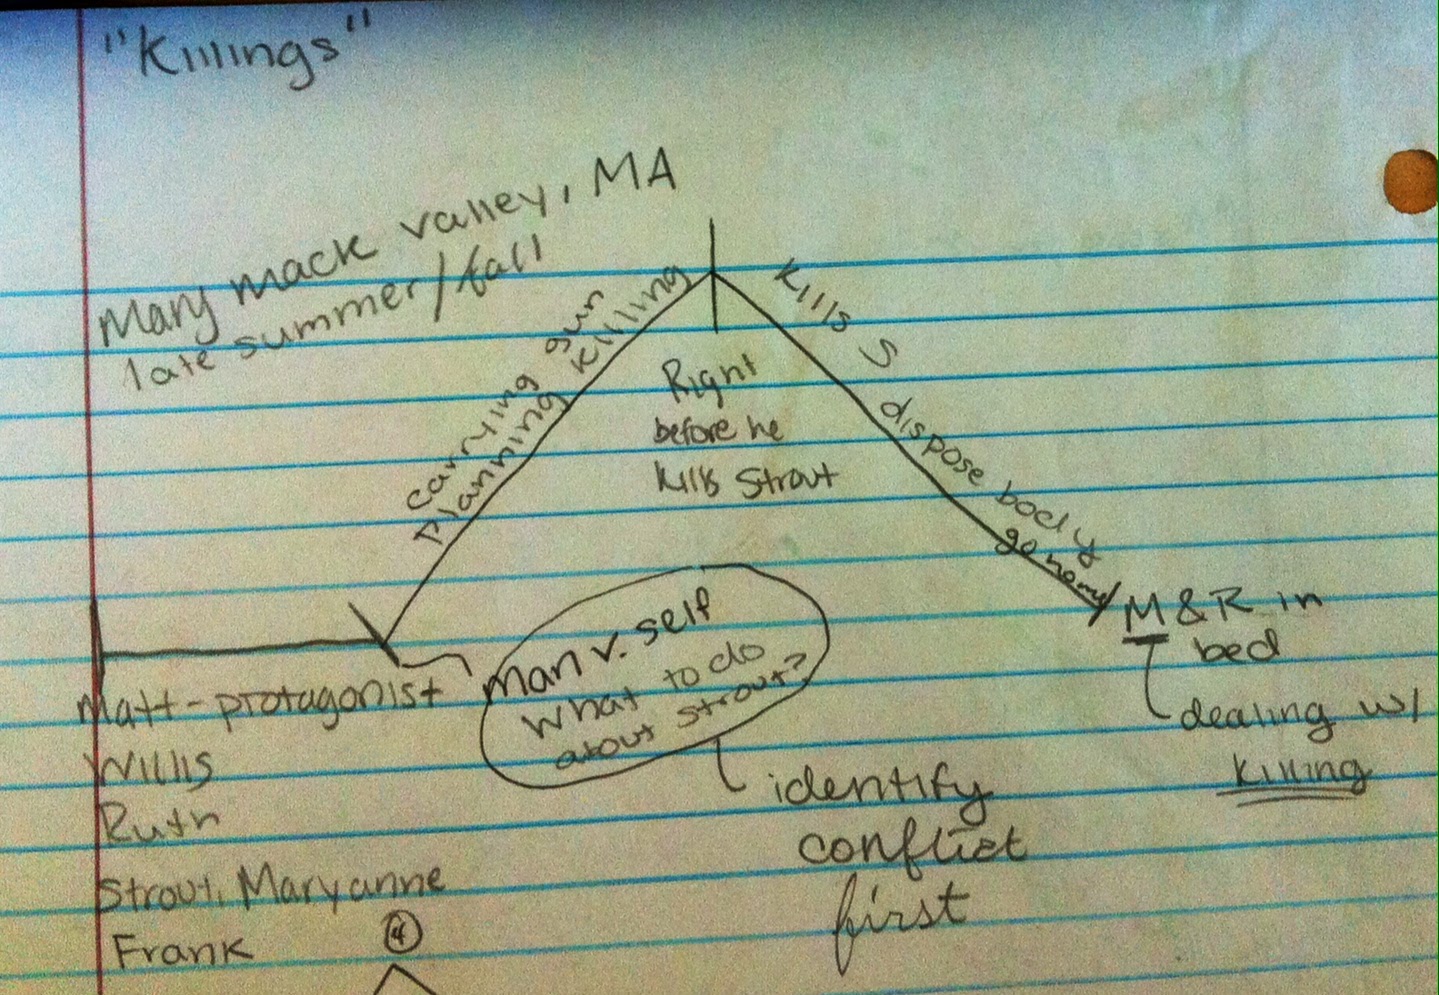 "Killings"
Mary mack valley, MA
late summer/fall
carrying gun
Planning killing
Right
before he
kills Strout
kills S
dispose body
go home
M & R in
bed
dealing w/
killing
Man v. self
What to do
about Strout?
identify
conflict
first
Matt - protagonist
Willis
Ruth
Strout, Maryanne
Frank
4